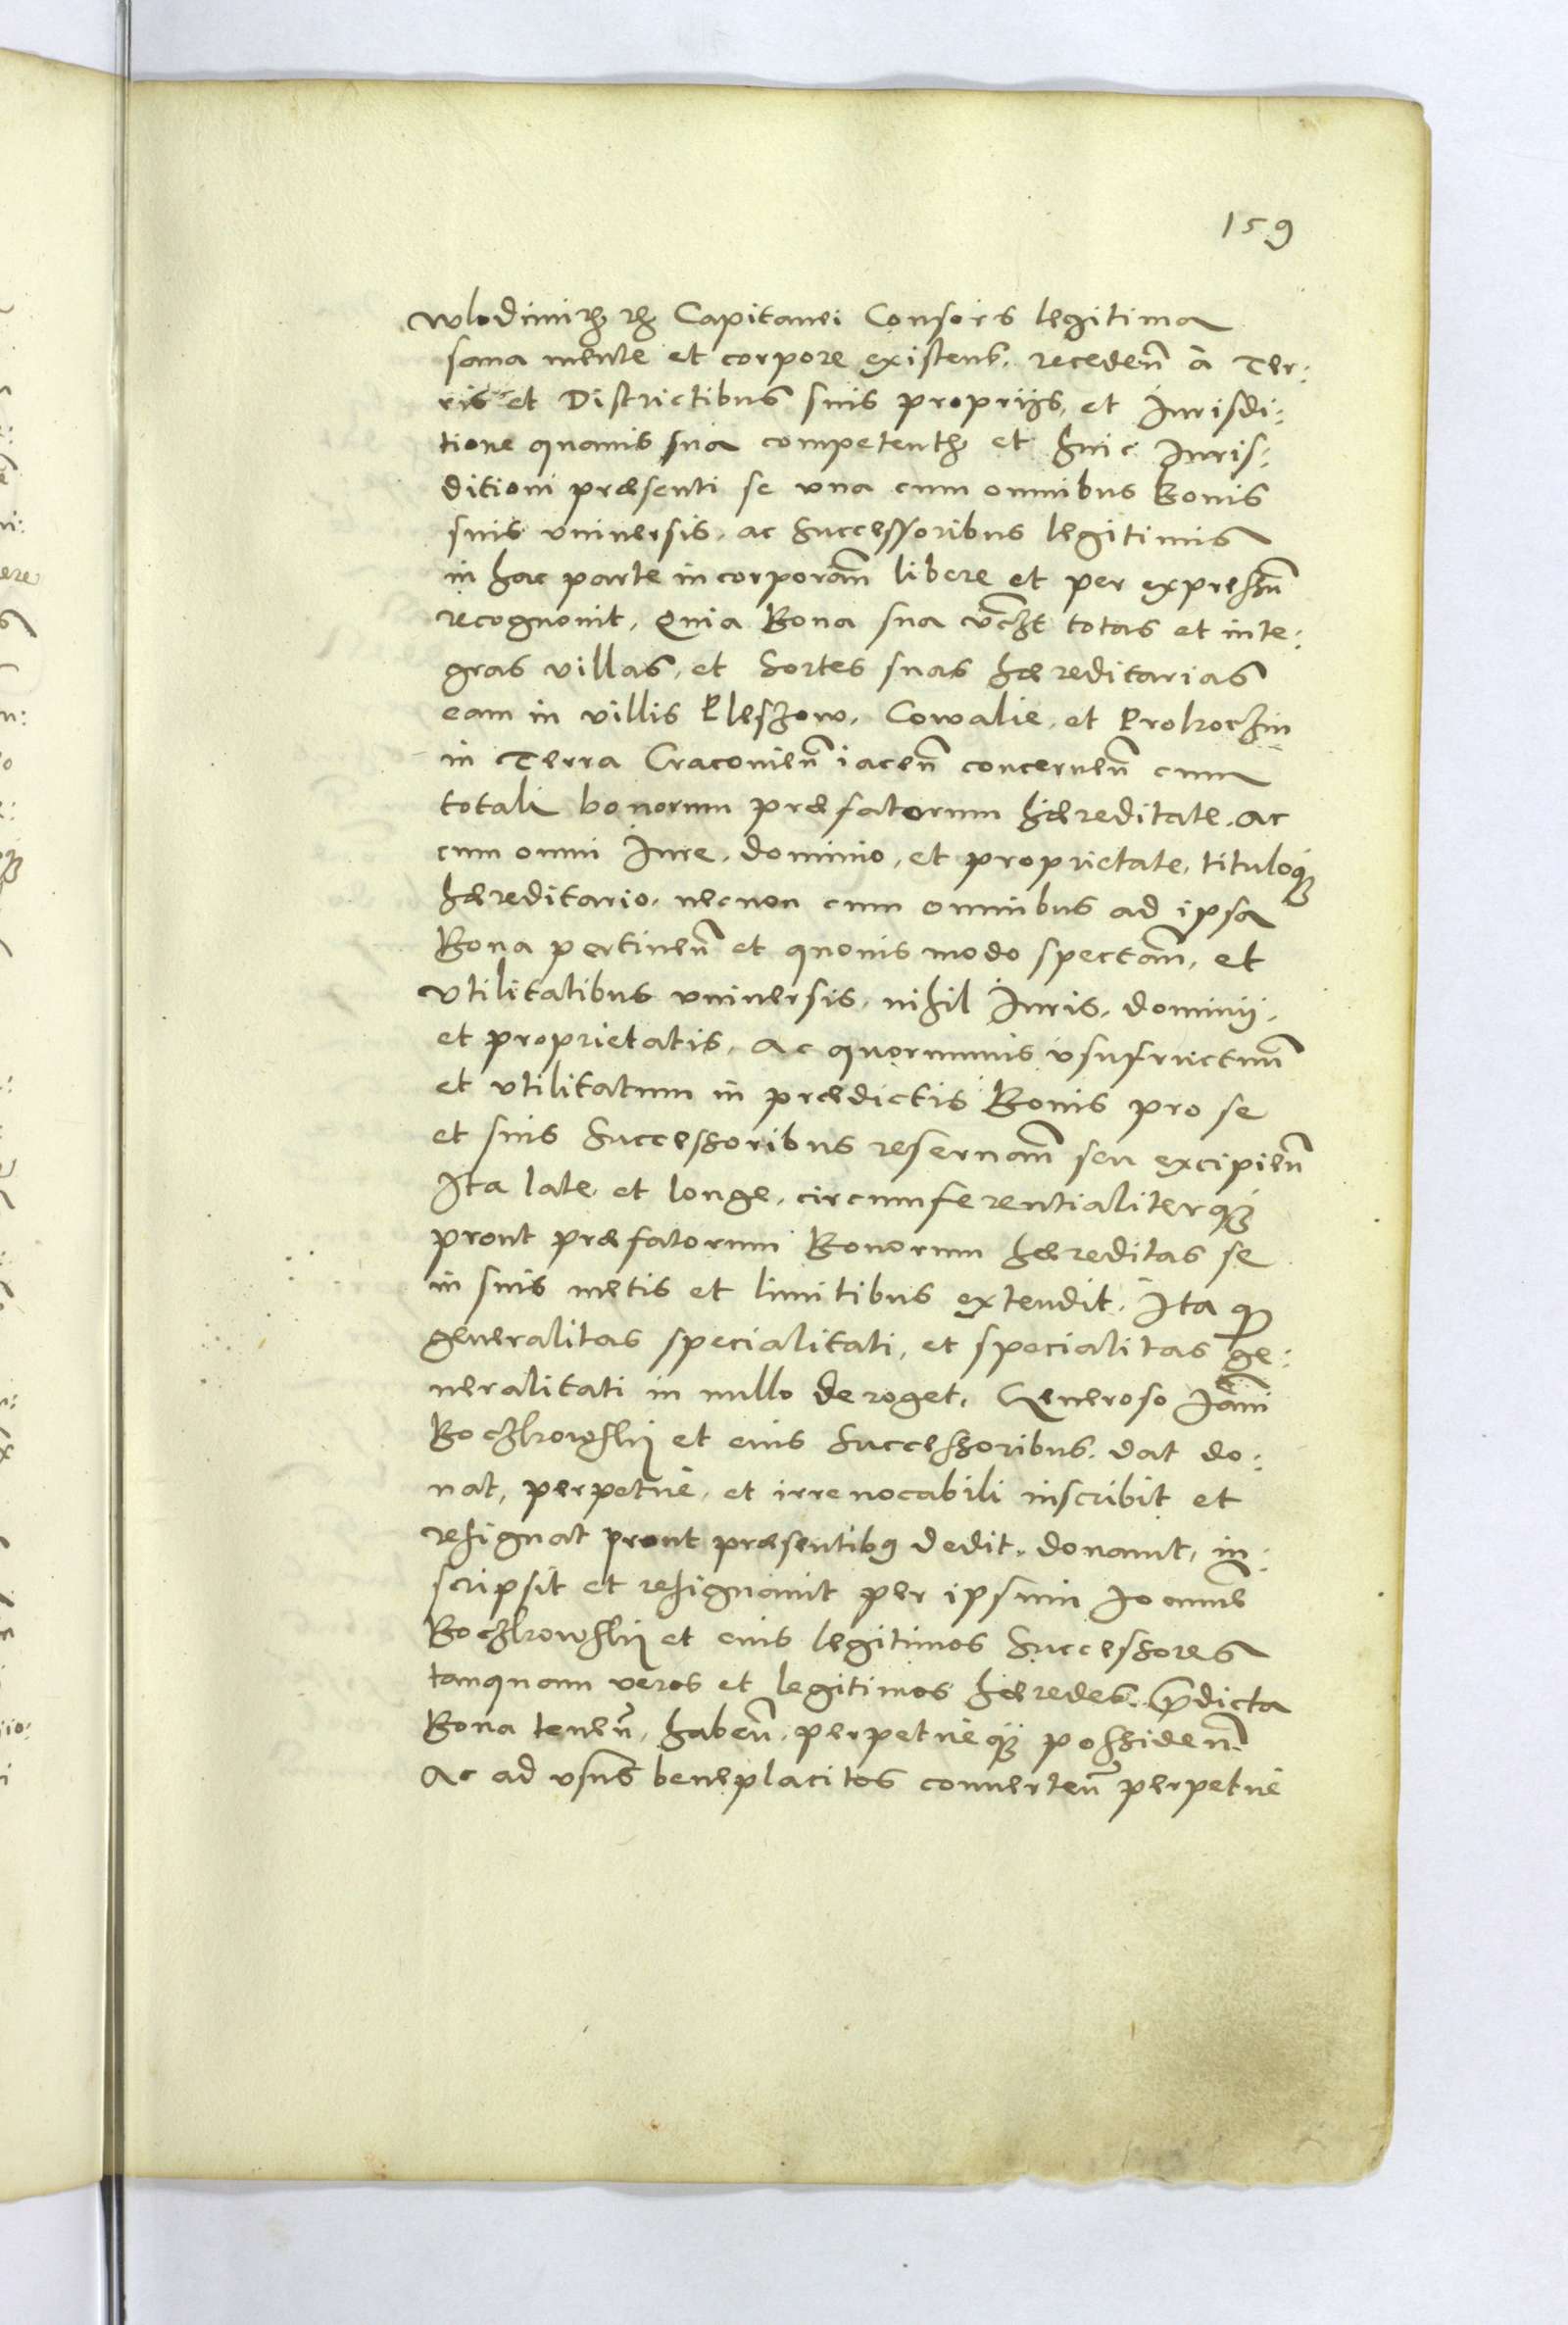 159
Wlodimirz rz Capitanei Consors legitima
sana mente et corpore existens, receden̄ à Ter:
ris et Districtibus suis proprijs, et Jurisdi:
tione quauis sua competentz et huic Juris:
ditioni præsenti se vna cum omnibus Bonis
suis vniuersis, ac Successoribus legitimis
in hac parte incorporan̄ libere et per expressum̄
recognouit, Quia Bona sua vcz̄t totas et inte:
gras villas, et Sortes suas hæreditarias
eam in villis Pleszow, Cowalie, et Prokoczin
in Terra Cracouien̄ iacen̄ concernen̄ cum
totali bonorum præfatorum hæreditate, ac
cum omni Jure, dominio, et proprietate, tituloq3
hæreditario, necnon cum omnibus ad ipsa
Bona pertinen̄ et quouis modo spectan̄, et
vtilitatibus vniuersis, nihil Juris, dominij,
et proprietatis, ac quorumuis vsufructuum̄
et vtilitatum in prædictis Bonis pro se
et suis Successoribus reseruan̄ seu excipien̄
Ita late et longe, circumferentialiterq3
prout præfatorum Bonorum hæreditas se
in suis metis et limitibus extendit, Ita ꝙ
generalitas specialitati, et specialitas ge:
neralitati in nullo deroget, Generoso Joan̄i
Boczkowskij et eius Successoribus, dat do:
nat, perpetuè, et irreuocabili inscribit et
resignat prout præsentibꝰ dedit, donauit, in:
scripsit et resignauit per ipsum Joannē
Boczkowskij et eius legitimos Successores
tanquam veros et legitimos hæredes, p̄dicta
Bona tenen̄, haben̄, perpetueq3 possiden̄
Ac ad vsus beneplacitos conuerten̄ perpetuè